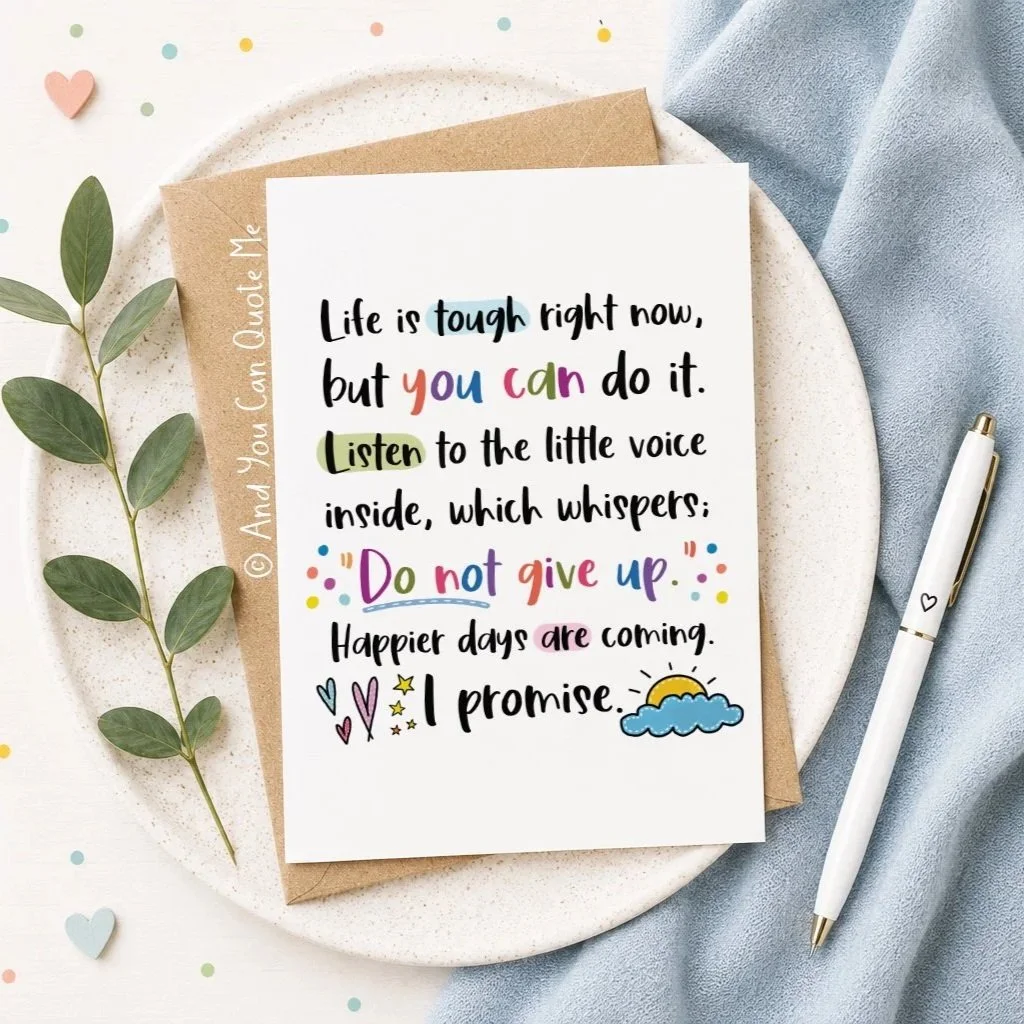 Life is tough right now,
but you can do it.
Listen to the little voice
inside, which whispers;
"Do not give up."
Happier days are coming.
I promise.
© And You Can Quote Me